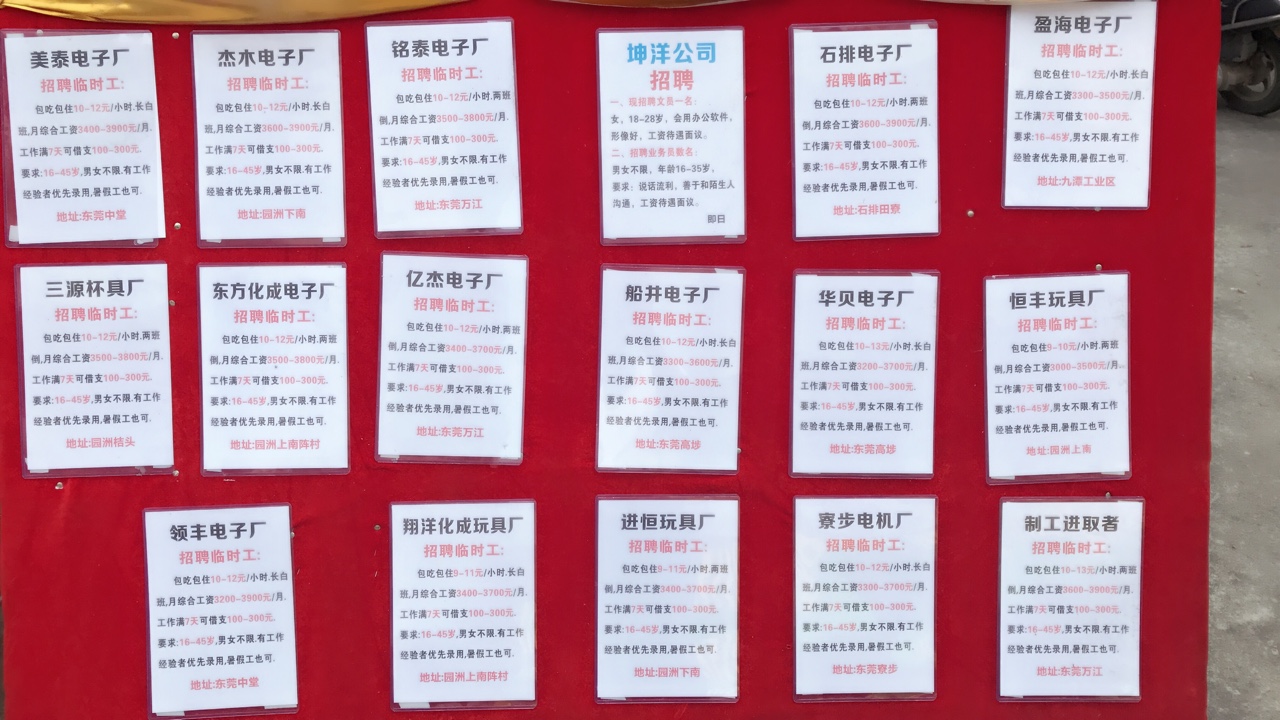 美泰电子厂
招聘临时工:
包吃包住10-12元/小时.长白
班,月综合工资3400-3900元/月.
工作满7天可借支100-300元.
要求:16-45岁,男女不限.有工作
经验者优先录用,暑假工也可.
地址:东莞中堂
杰木电子厂
招聘临时工:
包吃包住10-12元/小时.长白
班,月综合工资3600-3900元/月.
工作满7天可借支100-300元.
要求:16-45岁,男女不限.有工作
经验者优先录用,暑假工也可.
地址:园洲下南
铭泰电子厂
招聘临时工:
包吃包住10-12元/小时.两班
倒,月综合工资3500-3800元/月.
工作满7天可借支100-300元.
要求:16-45岁,男女不限.有工作
经验者优先录用,暑假工也可.
地址:东莞万江
坤洋公司
招聘
一、现招聘文员一名：
女，18-28岁，会用办公软件，
形像好，工资待遇面议。
二、招聘业务员数名：
男女不限，年龄16-35岁，
要求：说话流利，善于和陌生人
沟通，工资待遇面议。
即日
石排电子厂
招聘临时工:
包吃包住10-12元/小时.长白
班,月综合工资3600-3900元/月.
工作满7天可借支100-300元.
要求:16-45岁,男女不限.有工作
经验者优先录用,暑假工也可.
地址:石排田寮
盈海电子厂
招聘临时工:
包吃包住10-12元/小时.长白
班,月综合工资3300-3500元/月.
工作满7天可借支100-300元.
要求:16-45岁,男女不限.有工作
经验者优先录用,暑假工也可.
地址:九潭工业区
三源杯具厂
招聘临时工:
包吃包住10-12元/小时.两班
倒,月综合工资3500-3800元/月.
工作满7天可借支100-300元.
要求:16-45岁,男女不限.有工作
经验者优先录用,暑假工也可.
地址:园洲桔头
东方化成电子厂
招聘临时工:
包吃包住10-12元/小时.两班
倒,月综合工资3500-3800元/月.
工作满7天可借支100-300元.
要求:16-45岁,男女不限.有工作
经验者优先录用,暑假工也可.
地址:园洲上南阵村
亿杰电子厂
招聘临时工:
包吃包住10-12元/小时.两班
倒,月综合工资3400-3700元/月.
工作满7天可借支100-300元.
要求:16-45岁,男女不限.有工作
经验者优先录用,暑假工也可.
地址:东莞万江
船井电子厂
招聘临时工:
包吃包住10-12元/小时.长白
班,月综合工资3300-3600元/月.
工作满7天可借支100-300元.
要求:16-45岁,男女不限.有工作
经验者优先录用,暑假工也可.
地址:东莞高埗
华贝电子厂
招聘临时工:
包吃包住10-13元/小时.长白
班,月综合工资3200-3700元/月.
工作满7天可借支100-300元.
要求:16-45岁,男女不限.有工作
经验者优先录用,暑假工也可.
地址:东莞高埗
恒丰玩具厂
招聘临时工:
包吃包住9-10元/小时.两班
倒,月综合工资3000-3500元/月.
工作满7天可借支100-300元.
要求:16-45岁,男女不限.有工作
经验者优先录用,暑假工也可.
地址:园洲上南
领丰电子厂
招聘临时工:
包吃包住10-12元/小时.长白
班,月综合工资3200-3900元/月.
工作满7天可借支100-300元.
要求:16-45岁,男女不限.有工作
经验者优先录用,暑假工也可.
地址:东莞中堂
翔洋化成玩具厂
招聘临时工:
包吃包住9-11元/小时.长白
班,月综合工资3400-3700元/月.
工作满7天可借支100-300元.
要求:16-45岁,男女不限.有工作
经验者优先录用,暑假工也可.
地址:园洲上南阵村
进恒玩具厂
招聘临时工:
包吃包住9-11元/小时.两班
倒,月综合工资3400-3700元/月.
工作满7天可借支100-300元.
要求:16-45岁,男女不限.有工作
经验者优先录用,暑假工也可.
地址:园洲下南
寮步电机厂
招聘临时工:
包吃包住10-12元/小时.长白
班,月综合工资3300-3700元/月.
工作满7天可借支100-300元.
要求:16-45岁,男女不限.有工作
经验者优先录用,暑假工也可.
地址:东莞寮步
制工进取者
招聘临时工:
包吃包住10-13元/小时.两班
倒,月综合工资3600-3900元/月.
工作满7天可借支100-300元.
要求:16-45岁,男女不限.有工作
经验者优先录用,暑假工也可.
地址:东莞万江